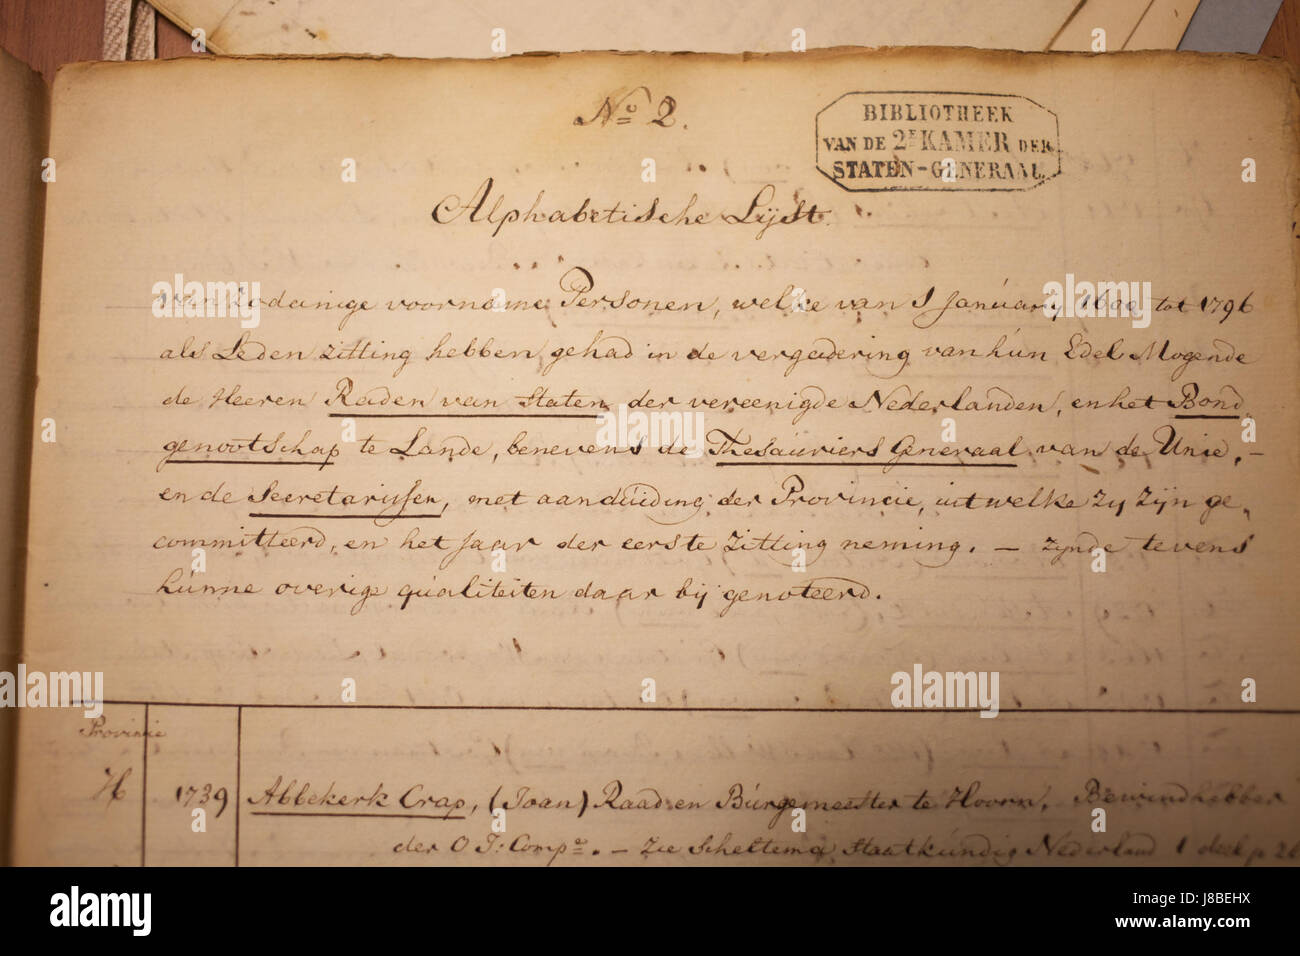 No 2.
BIBLIOTHEEK
VAN DE 2E KAMER DER
STATEN-GENERAAL
Alphabetische Lijst.
van zodainige voorname Personen, welke van 1 Janúary 1600 tot 1796
als Leden zitting hebben gehad in de vergadering van hún Edel Mogende
de Heeren Raden van Staten der vereenigde Nederlanden, en het Bond
genootschap te Lande, benevens de Thesaúriers Generaal van de Unie, –
en de Secretarissen, met aandúiding der Provincie, uit welke zy zijn ge,
committeerd, en het Jaar der eerste zitting neming. – zynde tevens
húnne overige qúaliteiten daar bij genoteerd.
Provincie
H 1739 Abbekerk Crap, (Joan) Raad en Búrgemeester te Hoorn, Bewindhebber
der O I: Compe. – Zie Scheltema, Staatkúndig Nederland 1 deel p
a alamy stock photo
alamy
Image ID: J8BEHX
www.alamy.com